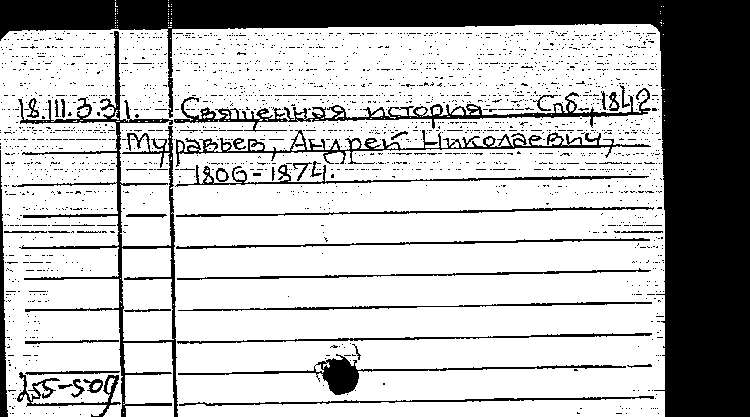 18.III.3.31. Священная история. Спб., 1842.
Муравьев, Андрей Николаевич,
1806-1874.
255-509